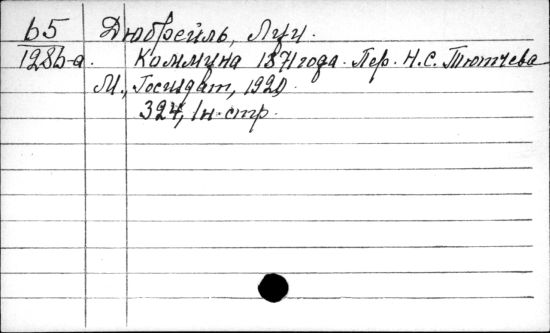 65 Дюбрейль, Луи.
1286-а. Коммуна 1871 года. Пер. Н.С. Тютчева
М., Госиздат, 1920.
324, 1н. стр.